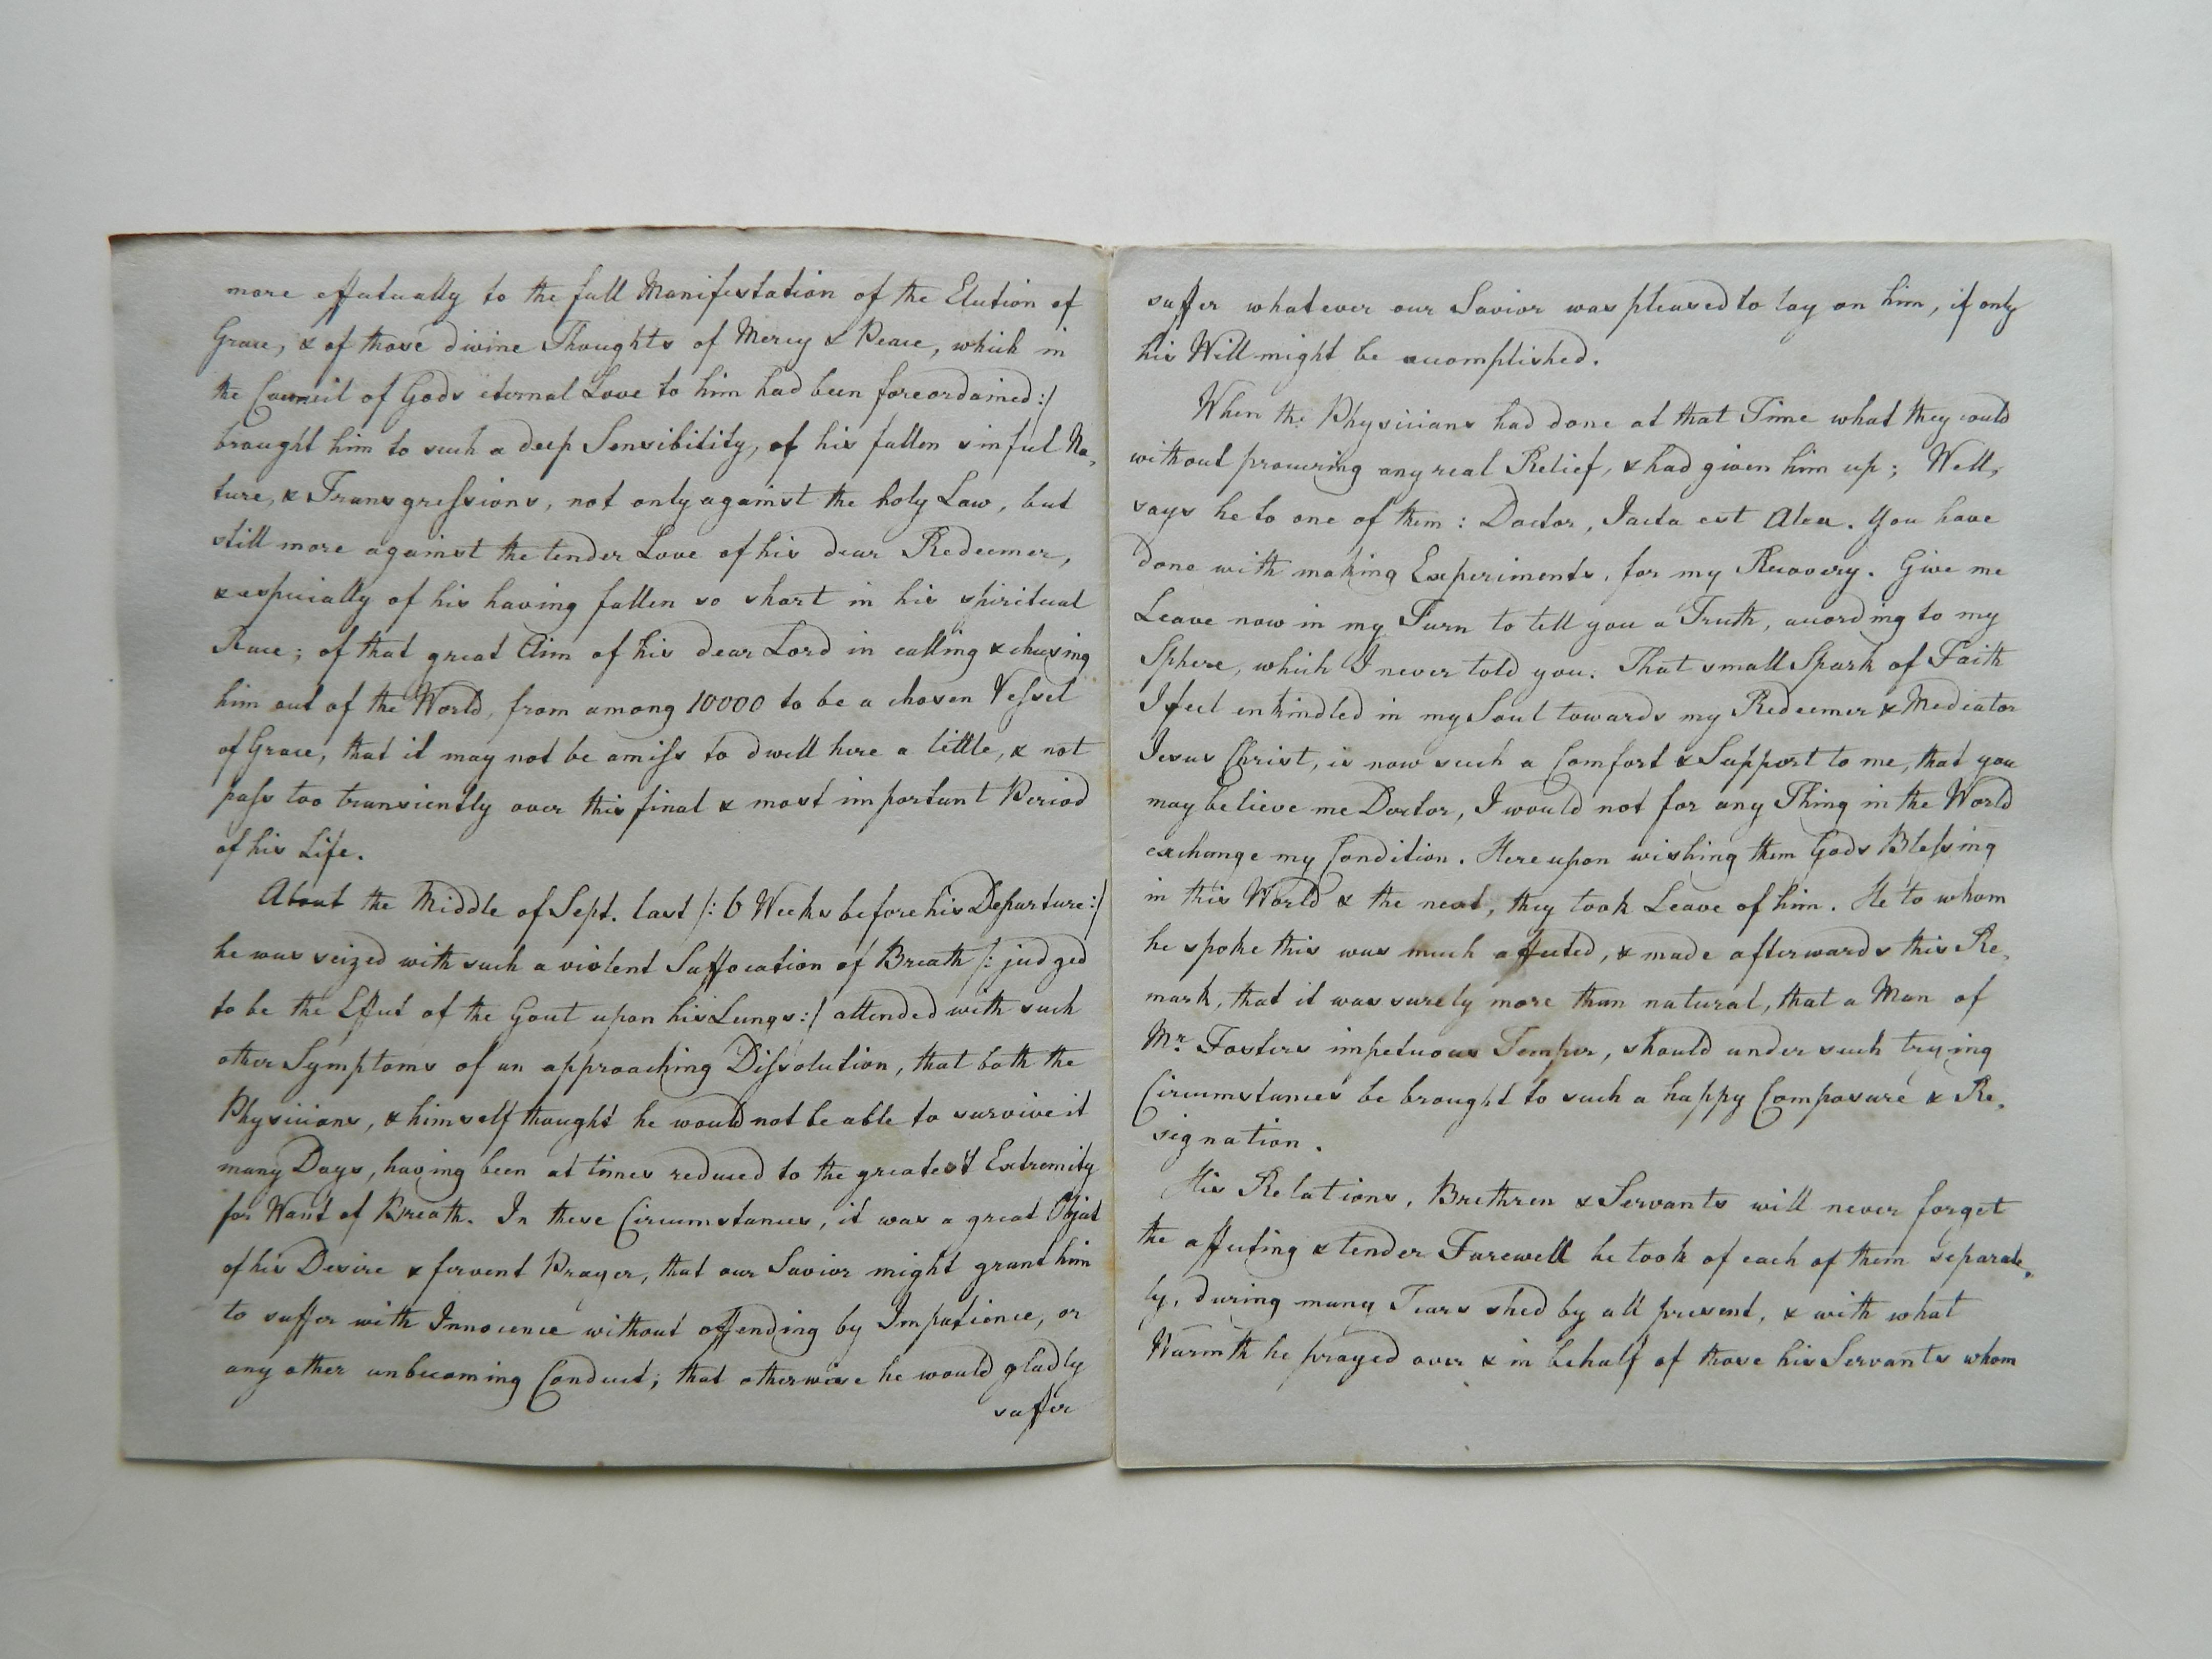 more effectually to the full Manifestation of the Election of
Grace, & of those divine Thoughts of Mercy & Peace, which in
the Council of Gods eternal Love to him had been foreordained:/
brought him to such a deep Sensibility, of his fallen sinful Na,
ture, & Transgressions, not only against the holy Law, but
still more against the tender Love of his dear Redeemer,
& especially of his having fallen so short in his spiritual
Race; of that great Aim of his dear Lord in calling & chusing
him out of the World, from among 10000 to be a chosen Vessel
of Grace, that it may not be amiss to dwell here a little, & not
pass too transiently over this final & most important Period
of his Life.
About the Middle of Sept. last /: 6 Weeks before his Departure:/
he was seized with such a violent Suffocation of Breath /: judged
to be the Effect of the Gout upon his Lungs:/ attended with such
other Symptoms of an approaching Dissolution, that both the
Physicians, & himself thought he would not be able to survive it
many Days, having been at times reduced to the greatest Extremity
for Want of Breath. In these Circumstances, it was a great Object
of his Desire & fervent Prayer, that our Savior might grant him
to suffer with Innocence without offending by Impatience, or
any other unbecoming Conduct; that otherwise he would gladly
suffer
suffer whatever our Savior was pleased to lay on him, if only
his Will might be accomplished.
When the Physicians had done at that Time what they could
without procuring any real Relief, & had given him up; Well,
says he to one of them: Doctor, Jacta est Alea. You have
done with making Experiments, for my Recovery. Give me
Leave now in my Turn to tell you a Truth, according to my
Sphere, which I never told you. That small Spark of Faith
I feel enkindled in my Soul towards my Redeemer & Mediator
Jesus Christ, is now such a Comfort & Support to me, that you
may believe me Doctor, I would not for any Thing in the World
exchange my Condition. Hereupon wishing them Gods Blessing
in this World & the next, they took Leave of him. He to whom
he spoke this was much affected, & made afterwards this Re,
mark, that it was surely more than natural, that a Man of
Mr. Fosters impetuous Temper, should under such trying
Circumstances be brought to such a happy Composure & Re,
signation.
His Relations, Brethren & Servants will never forget
the affecting & tender Farewell he took of each of them separate,
ly, during many Tears shed by all present, & with what
Warmth he prayed over & in behalf of those his Servants whom